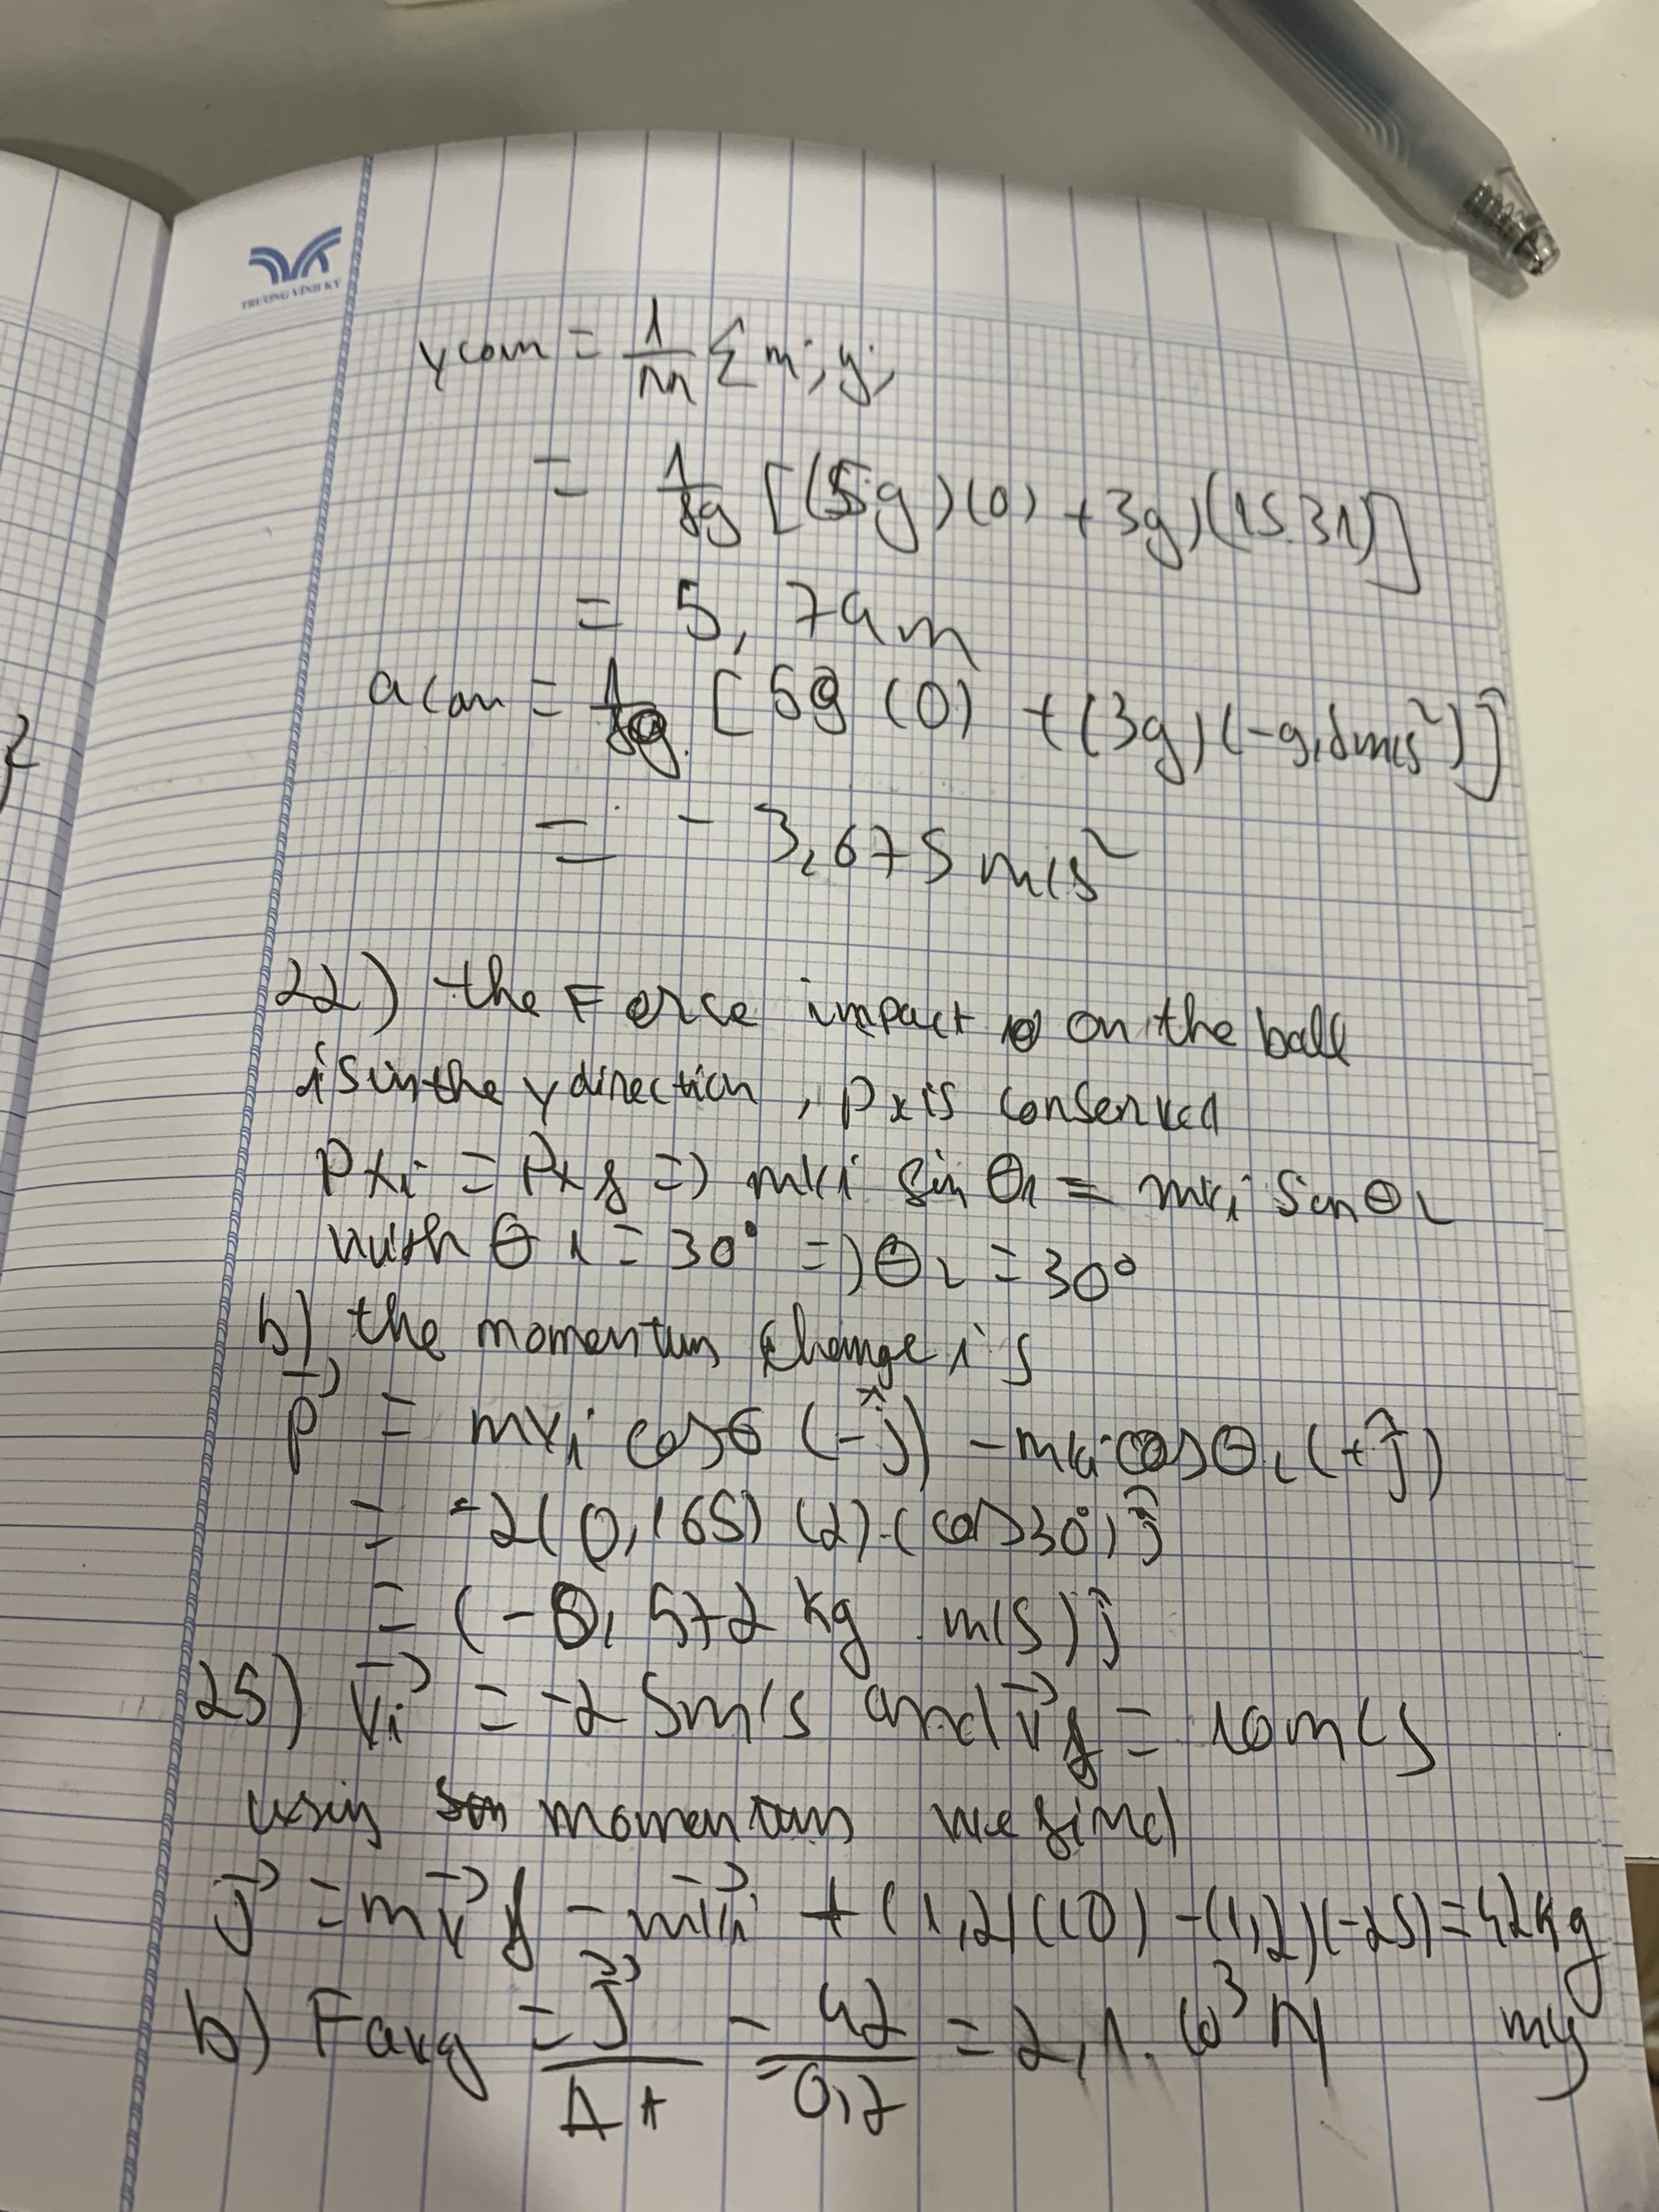 TRƯƠNG VĨNH KÝ
ycom = 1/m Σ mi yi
= 1/8g [(5g)(0) + 3g)(15.31)]
= 5,74m
acom = 1/8g [5g (0) + (3g)(-9,8m/s²)]
= - 3,675 m/s²
22) the Force impact on the ball
is in the y direction, px is conserved
Pxi = Pxf => mvi sin θ1 = mvi sin θ2
with θ1 = 30° => θ2 = 30°
b) the momentum change is
p⃗ = mvi cosθ (-ĵ) - mvi cosθ2 (+ĵ)
= -2(0,165) (2).(cos30°) ĵ
= (-0,572 kg . m/s) ĵ
25) v⃗i = -25m/s and v⃗f = 10m/s
using momentum we find
J⃗ = mv⃗f - mv⃗i + (1,2)(10) - (1,2)(-25) = 42kg
m/s
b) Favg = J⃗/Δt = 42/0,2 = 2,1.10³ N